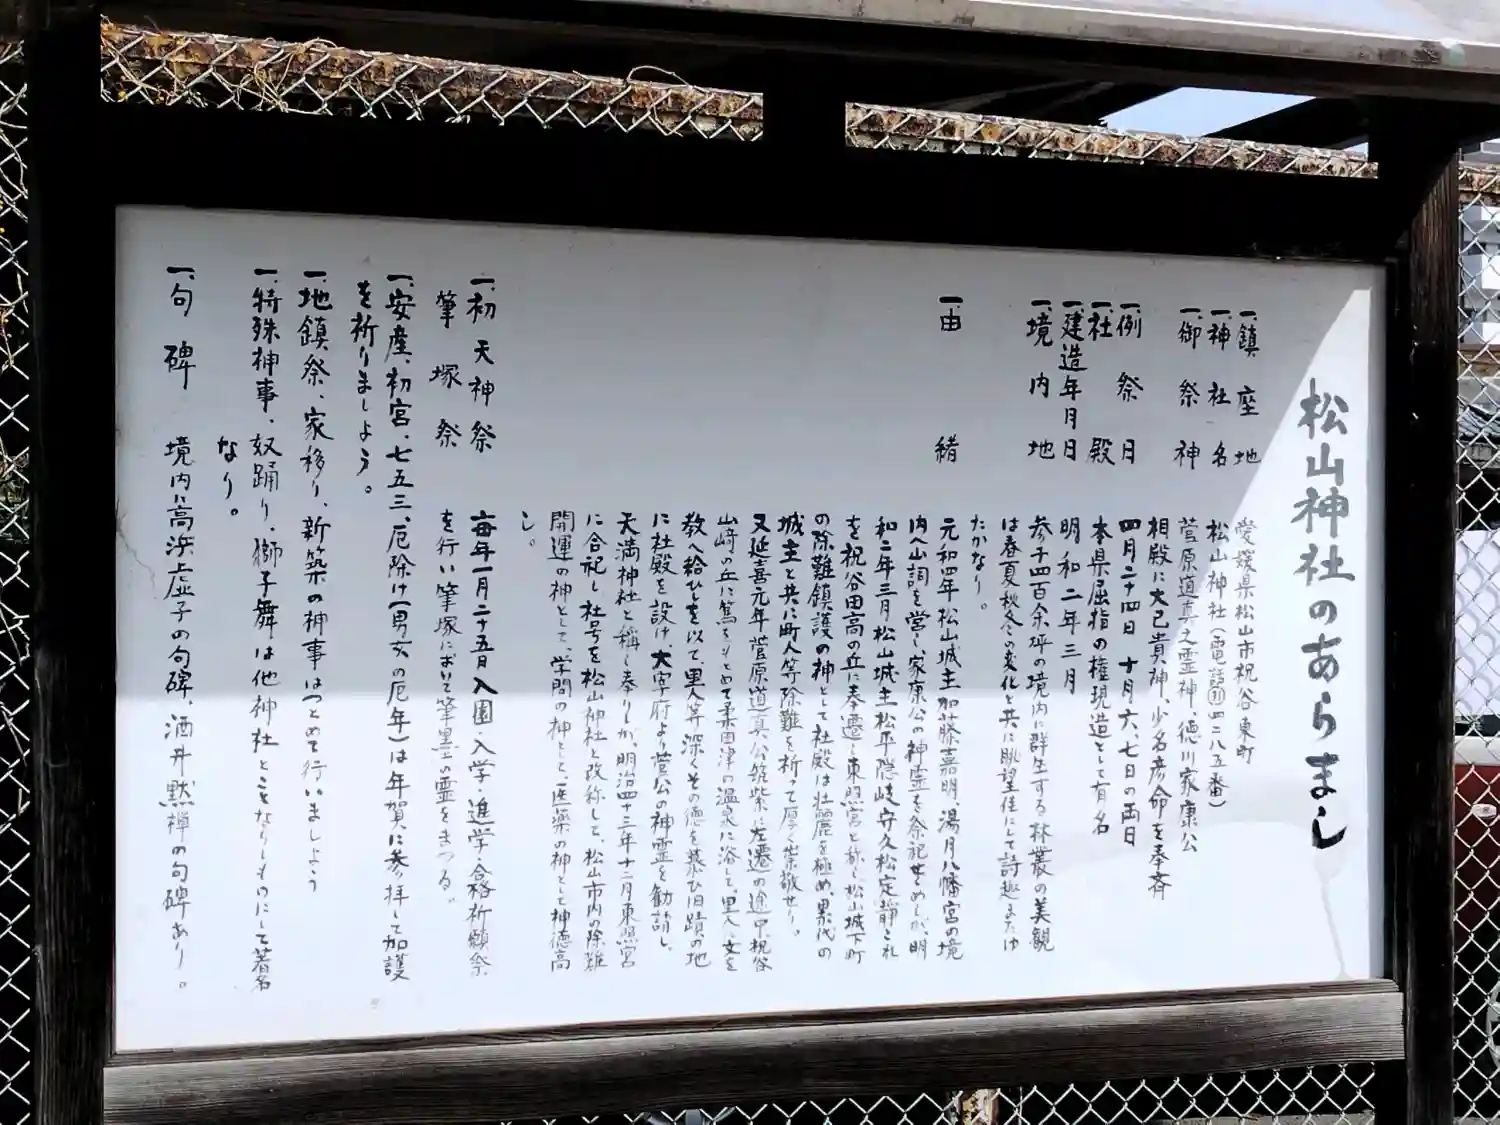 松山神社のあらまし
一、鎮座地 愛媛県松山市祝谷東町
一、神社名 松山神社(電話㊶四二八五番)
一、御祭神 菅原道真之霊神、徳川家康公
相殿に大己貴神、少名彦命を奉斉
一、例祭日 四月二十四日 十月六、七日の両日
一、社殿 本県屈指の権現造として有名
一、建造年月日 明和二年三月
一、境内地 参千四百余坪の境内に群生する林叢の美観
は春夏秋冬の変化と共に眺望佳にして詩趣またゆ
たかなり。
一、由緒 元和四年松山城主加藤嘉明、湯月八幡宮の境
内へ山詞を営し、家康公の神霊を祭祀せしめしが、明
和二年三月松山城主松平隠岐守久松定静これ
を祝谷田高の丘に奉遷し東照宮と称し松山城下町
の除難鎮護の神として社殿は壮麗を極め、累代の
城主と共に町人等除難を祈って厚く崇敬せり。
又延喜元年菅原道真公筑紫に左遷の途中祝谷
山﨑の丘に篤をもとめて柔田津の温泉に浴して里人に文を
教へ給ひしを以て、里人等深くその徳を慕ひ旧蹟の地
に社殿を設け、大宰府より菅公の神霊を勧請し、
天満神社と稱し奉りしが、明治四十三年十二月東照宮
に合祀し、社号を松山神社と改称して、松山市内の除難
開運の神として、学問の神として、医薬の神として神徳高
し。
一、初天神祭 毎年一月二十五日入園・入学・進学・合格祈願祭
筆塚祭 を行い筆塚において筆墨の霊をまつる。
一、安産、初宮、七五三、厄除け(男女の厄年)は年賀に参拝して加護
を祈りましよう。
一、地鎮祭、家移り、新築の神事はつとめて行いましよう
一、特殊神事、奴踊り、獅子舞は他神社とことなりしものにして著名
なり。
一、句碑 境内に高浜虚子の句碑、酒井黙禅の句碑あり。